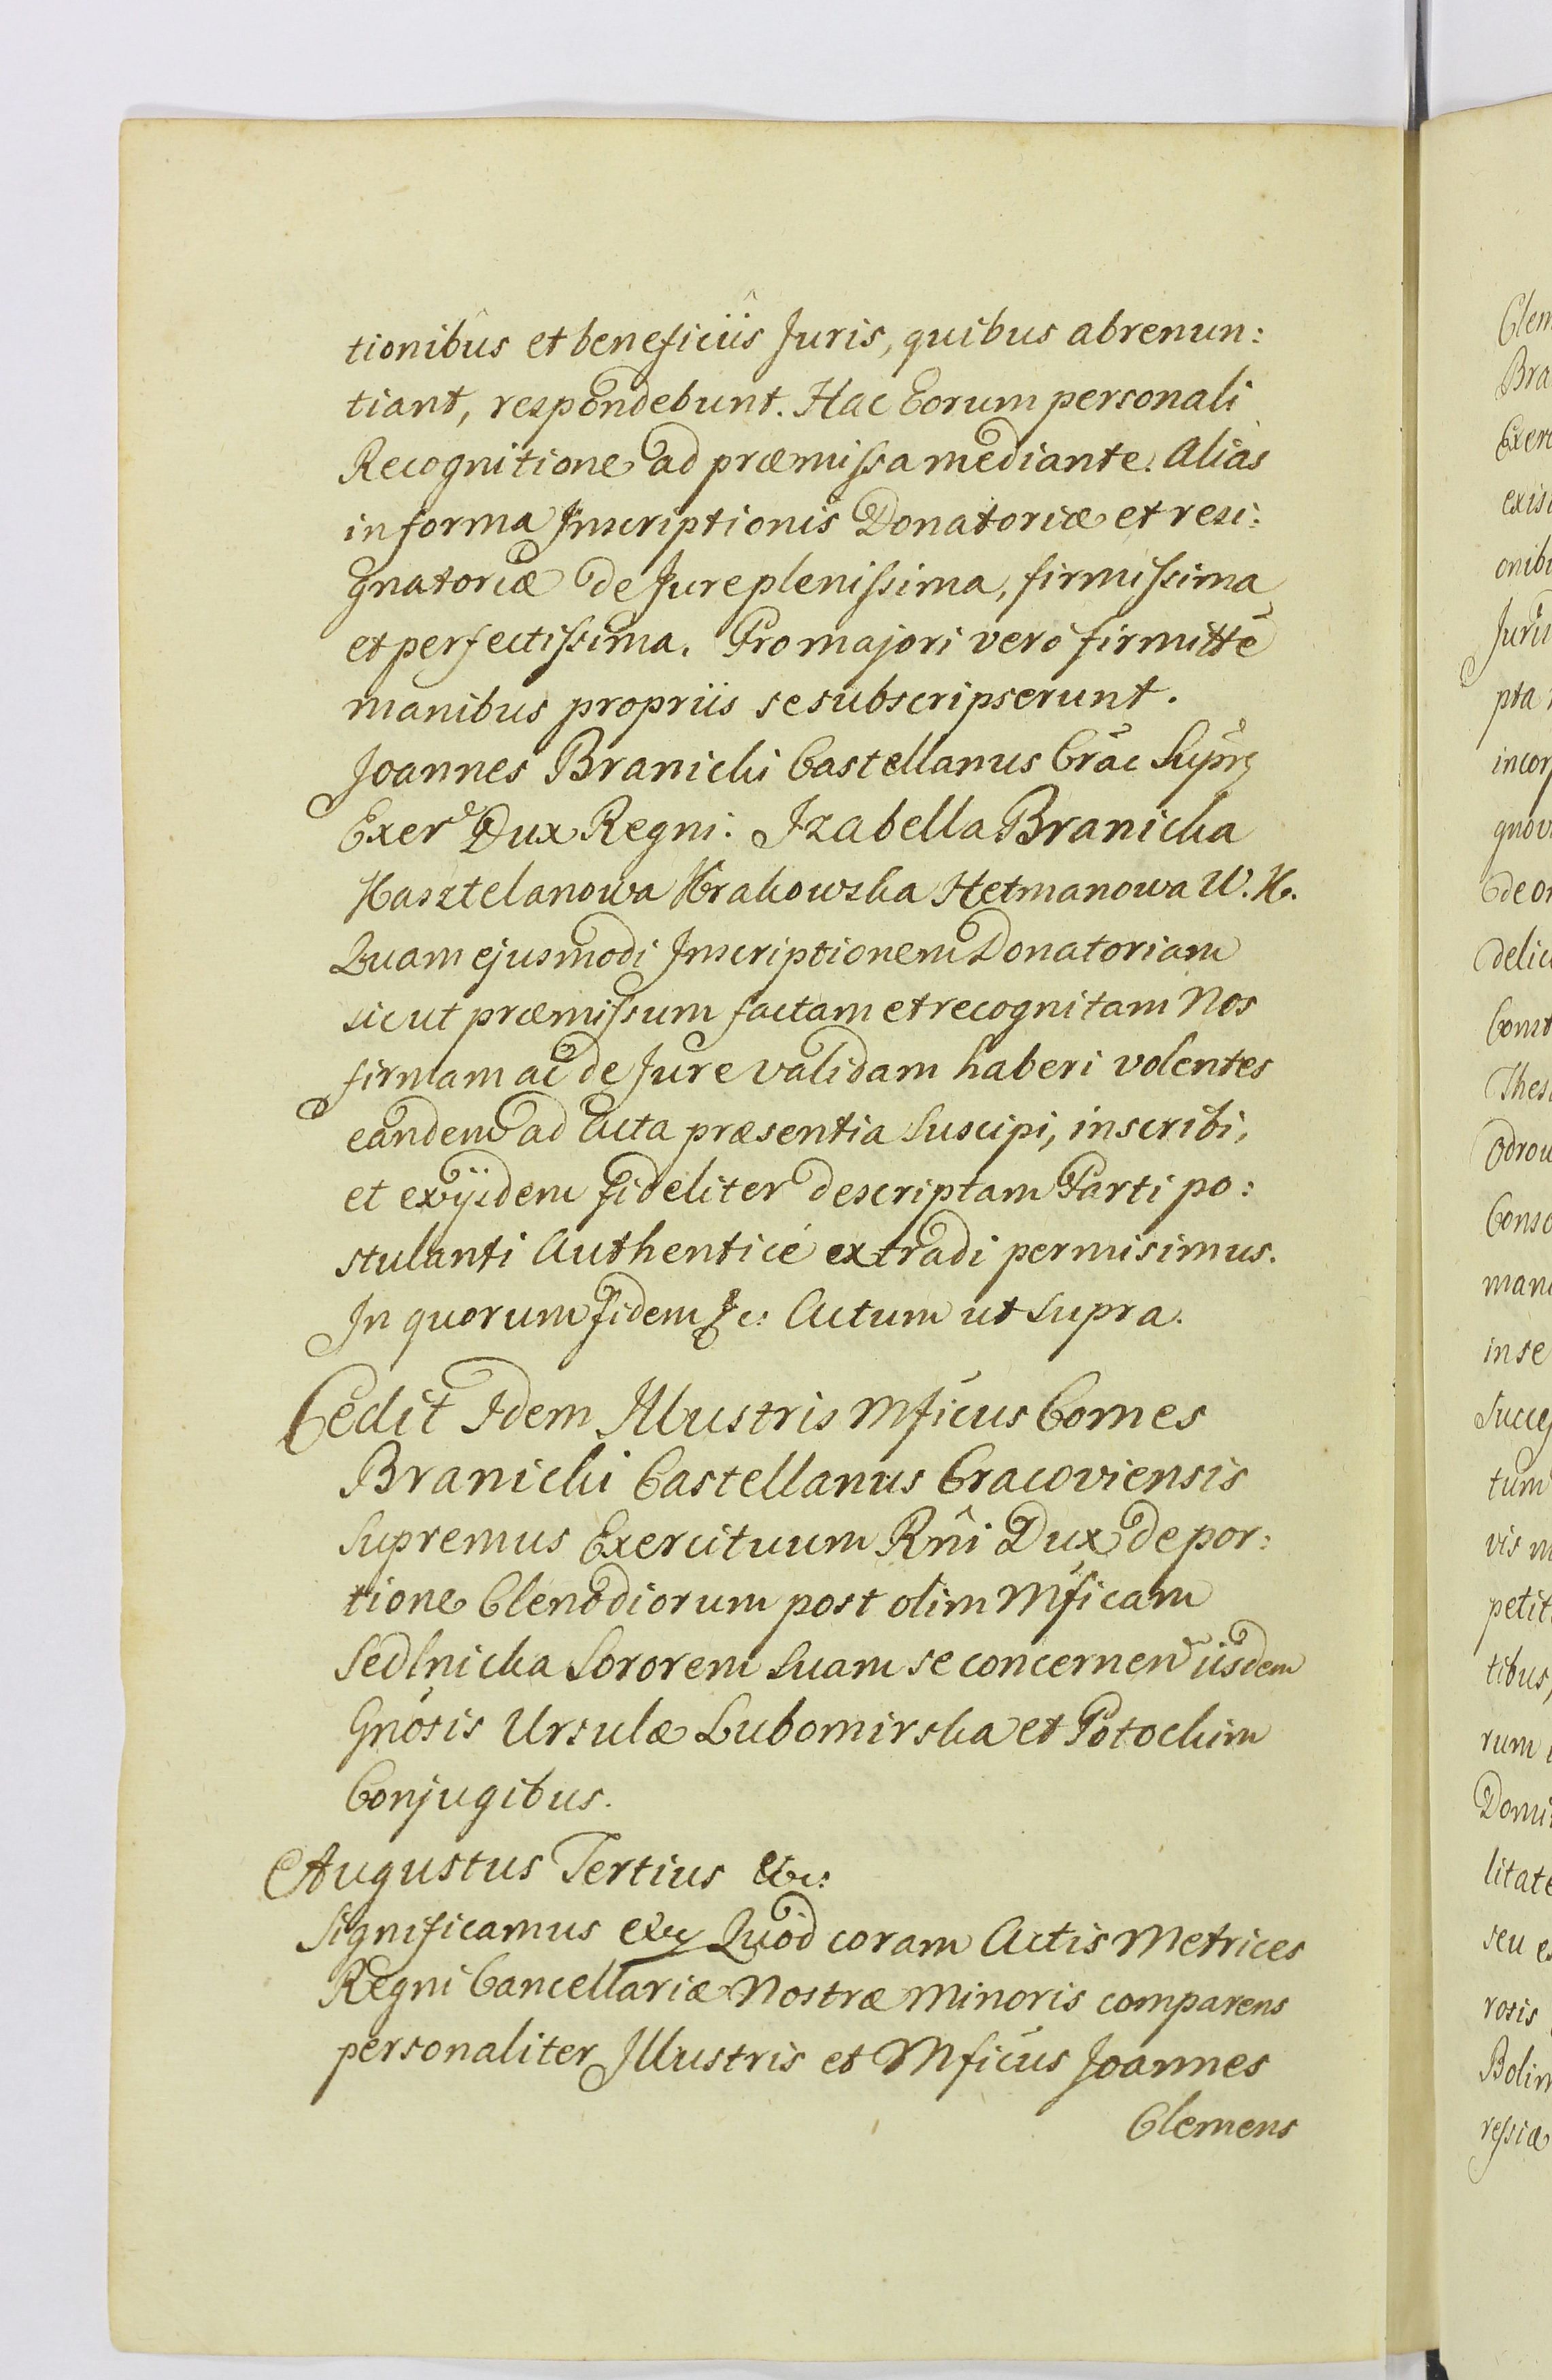 tionibûs et beneficiis Juris, quibus abrenun:
tiant, respondebunt. Hac Eorum personali
Recognitione ad præmissa mediante. Aliàs
in forma Inscriptionis Donatoriæ et resi:
gnatoriæ de Jure plenissima, firmissima
et perfectissima. Pro majori verò firmitte
manibus propriis se subscripserunt.
Joannes Branicki Castellanus Crac Supr
Exer Dux Regni: Izabella Branicka
Kasztelanowa Krakowska Hetmanowa W. K.
Quam ejusmodi Inscriptionem Donatoriam
sicut præmissum factam et recognitam Nos
firmam ac de Jure validam haberi volentes
eandem ad Acta præsentia Suscipi, inscribi,
et ex ijsdem fideliter descriptam Parti po:
stulanti Authenticé extradi permisimus.
In quorum fidem &c: Actum ut Supra.
Cedit Idem Illustris Mficus Comes
Branicki Castellanus Cracoviensis
Supremus Exercituum Rni Dux de por:
tione Clenodiorum post olim Mficam
Sedlnicka Sororem Suam se concernen iisdem
Gnosis Ursulæ Lubomirska et Potockim
Conjugibus.
Augustus Tertius &c:
Significamus &c Quod coram Actis Metrices
Regni Cancellariæ Nostræ Minoris comparens
personaliter Illustris et Mficus Joannes
Clemens
Clem
Bra
Exer
exis
onib
Juri
pta
incor
gnov
de o
delic
Const
Thes
Odrow
Conso
man
in se
Succes
tum
vis m
petit
tibus,
rum
Domi
litate
seu e
rosis
Bolim
ressiæ